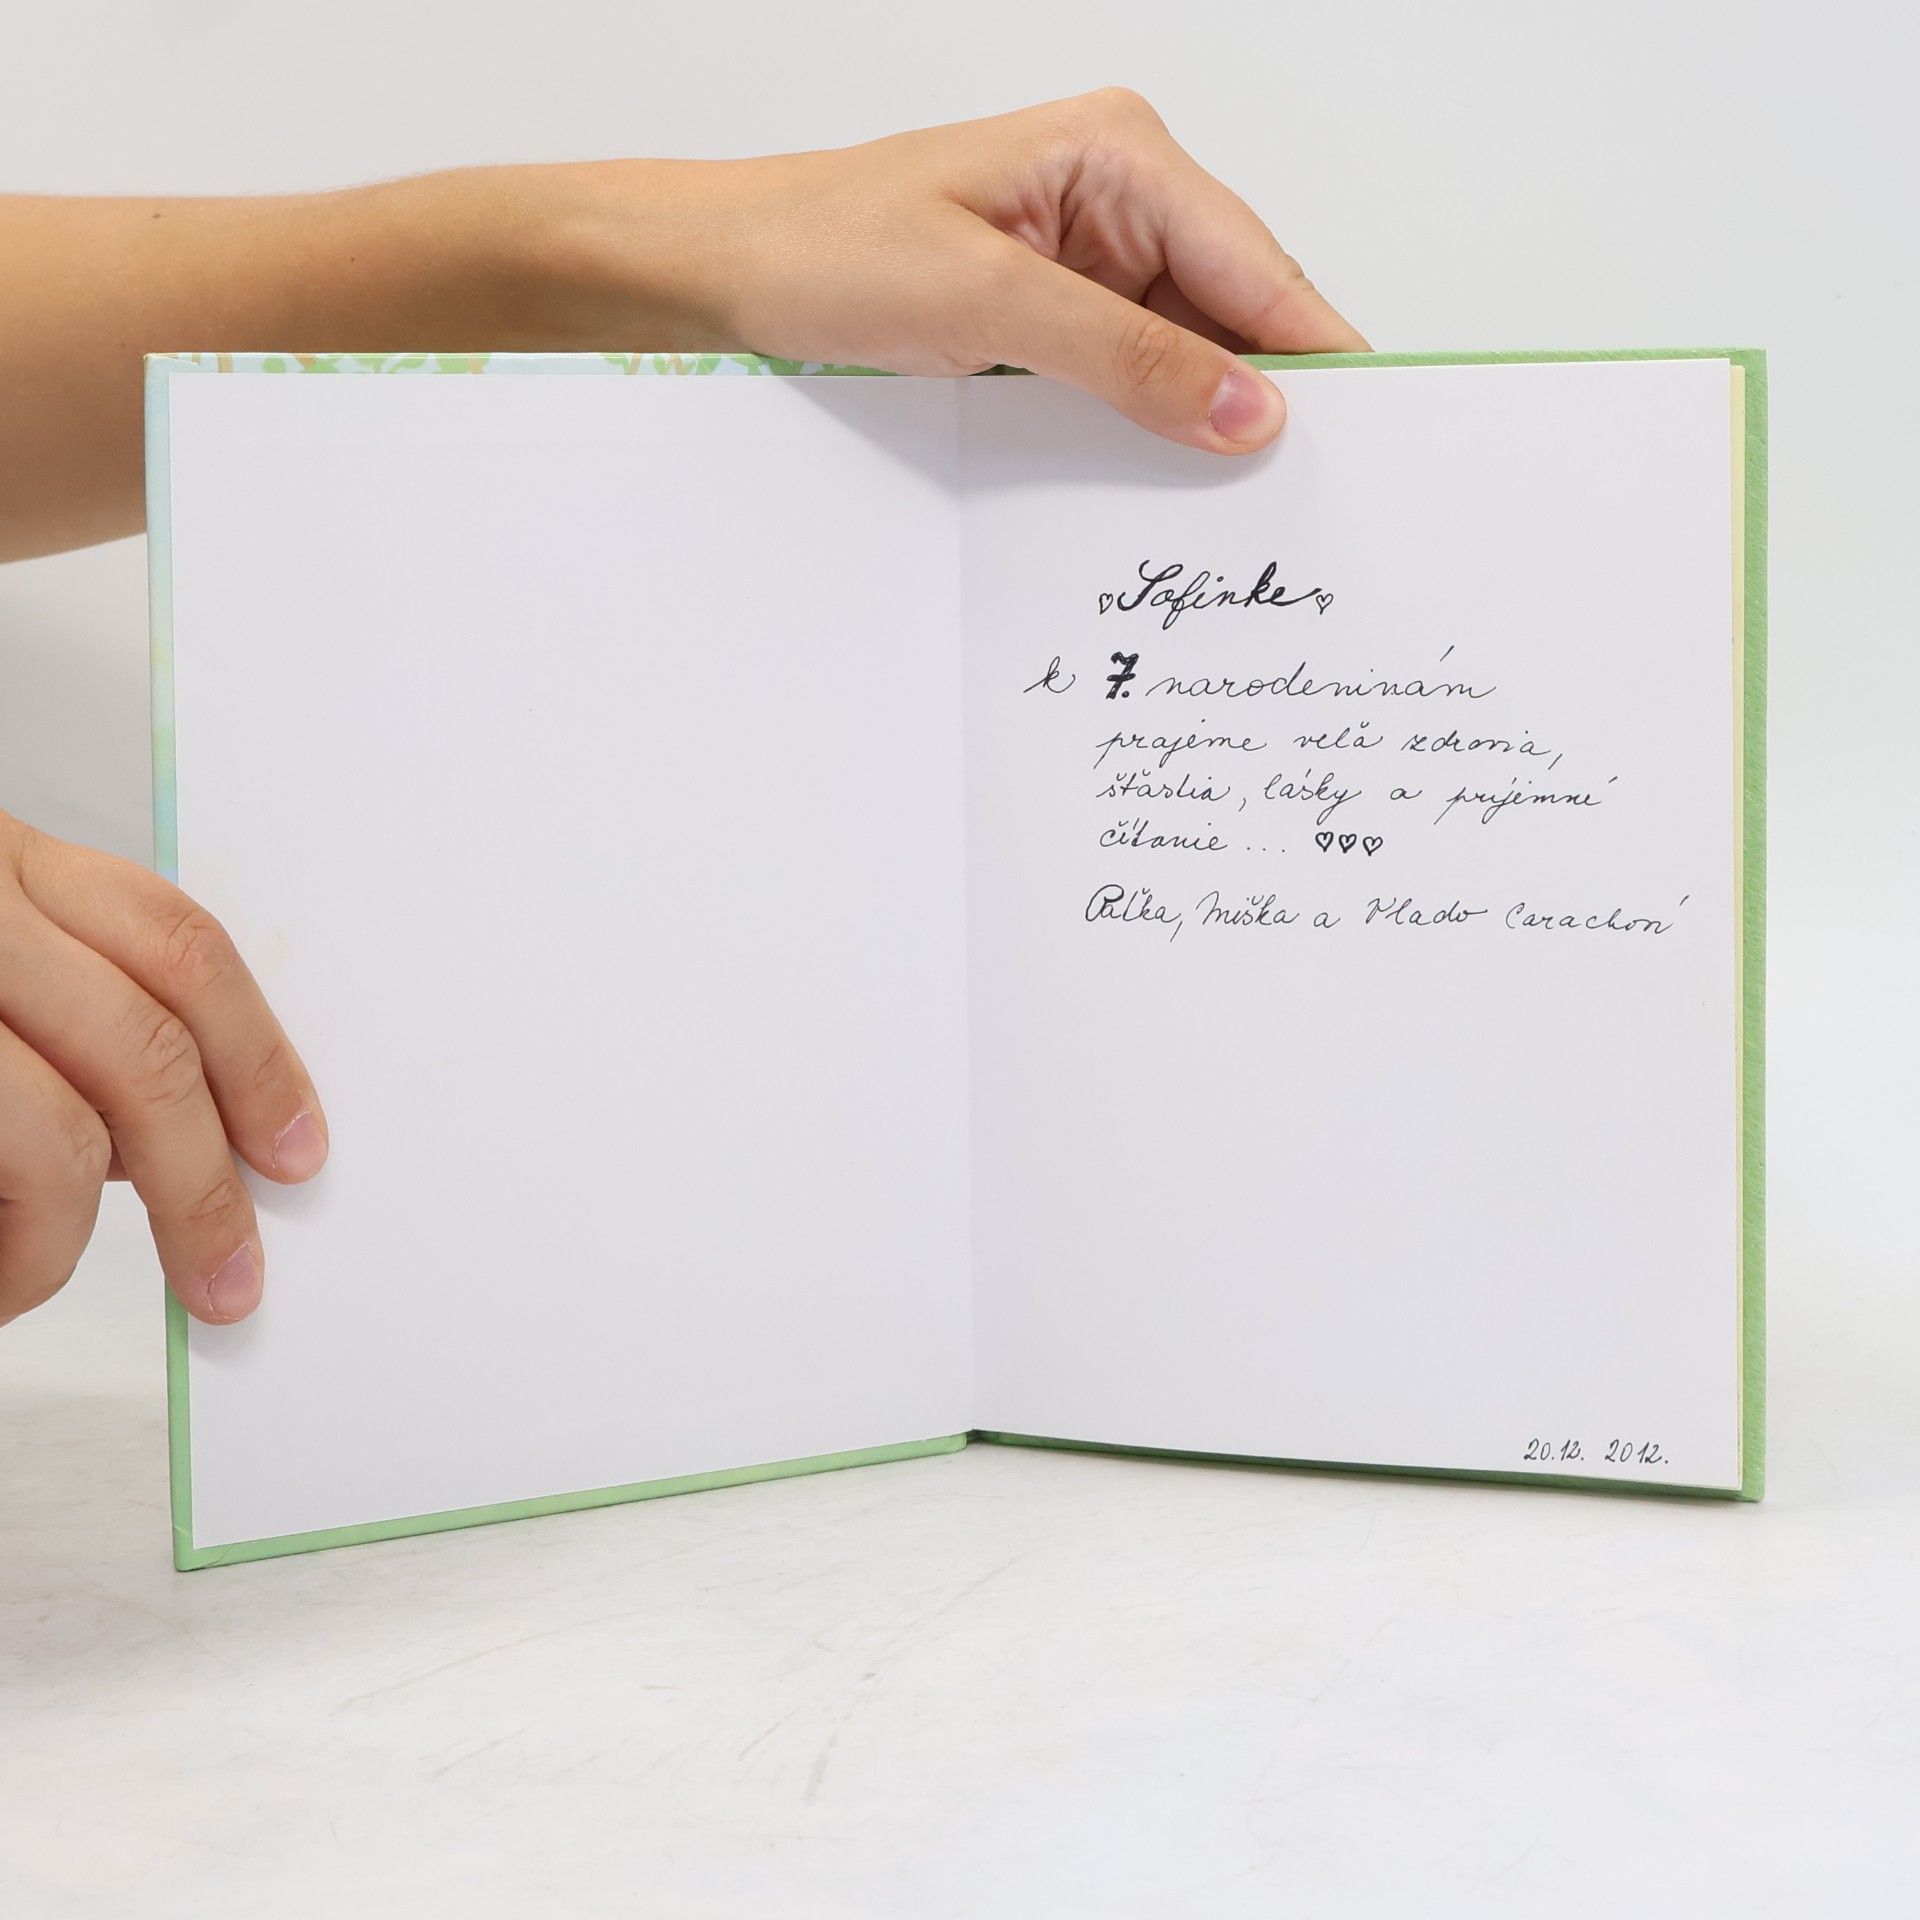 ♡Sofinke♡
k 7. narodeninám
prajeme veľa zdravia,
šťastia, lásky a príjemné
čítanie ... ♡♡♡
Paľka, Miška a Vlado Carachoví
20.12. 2012.